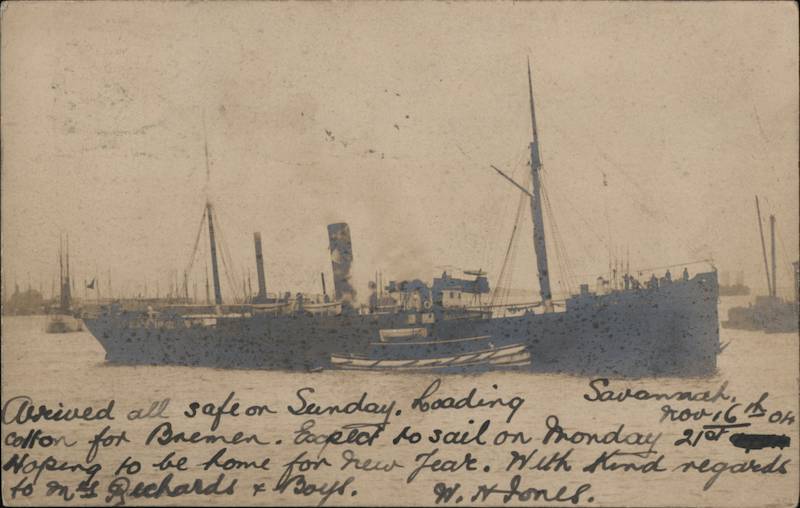 Savannah,
Nov 16th 04
Arrived all safe on Sunday. Loading
cotton for Bremen. Expect to sail on Monday 21st
Hoping to be home for New Year. With kind regards
to Mrs Richards & Boys. W. H Jones.